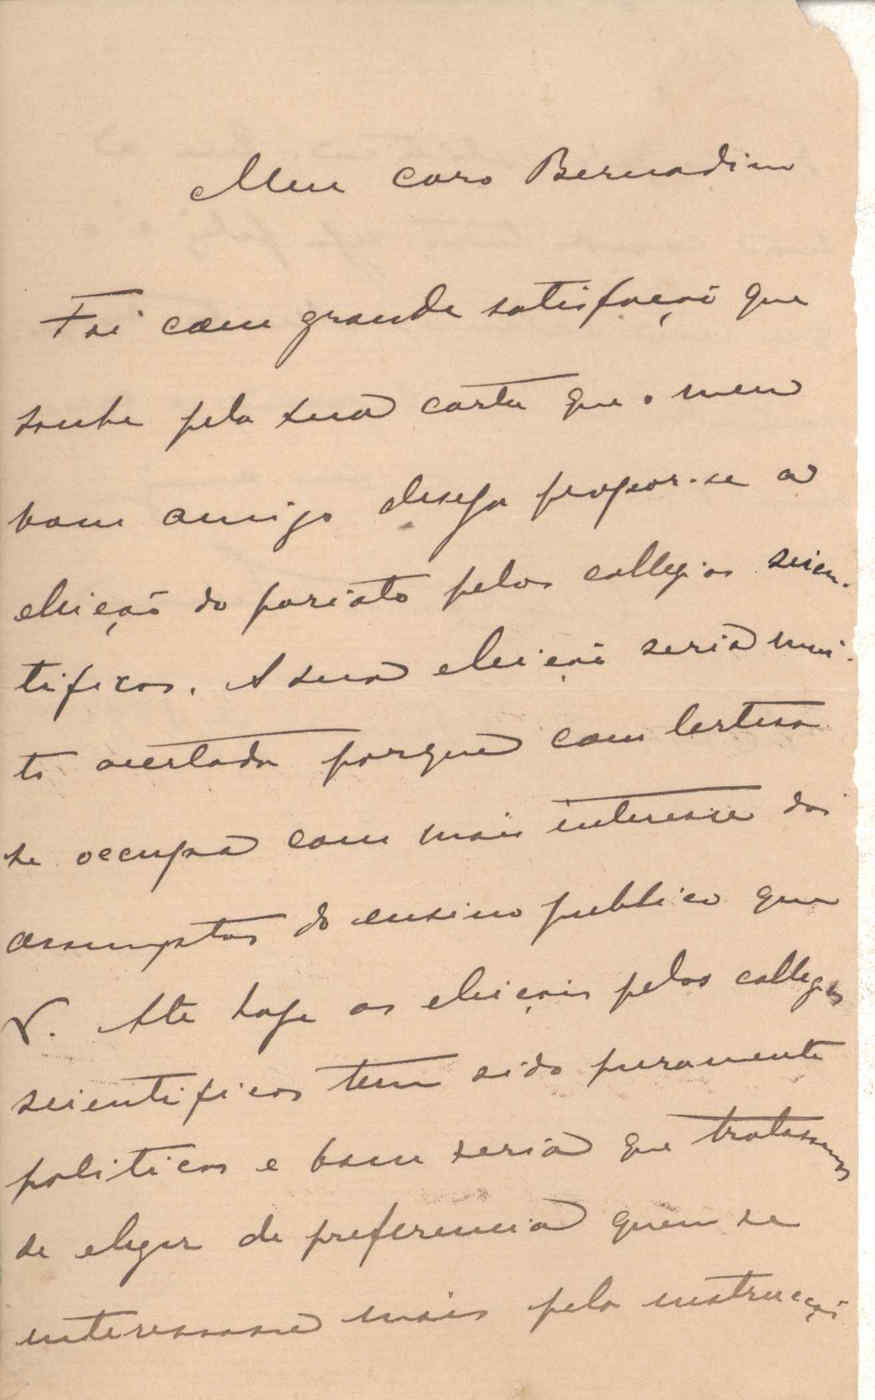 Meu caro Bernardino
Foi com grande satisfação que
soube pela sua carta que o meu
bom amigo deseja propor-se a
eleição do pariato pelos collegios scien-
tificos. A sua eleição seria mui-
to acertada porque com certesa
se occupa com mais interesse dos
assumptos do ensino publico que
V. Ate hoje as eleições pelos collegios
scientificos tem sido puramente
politicas e bom seria que tratassemos
de eleger de preferencia quem se
interessasse mais pela instrucção